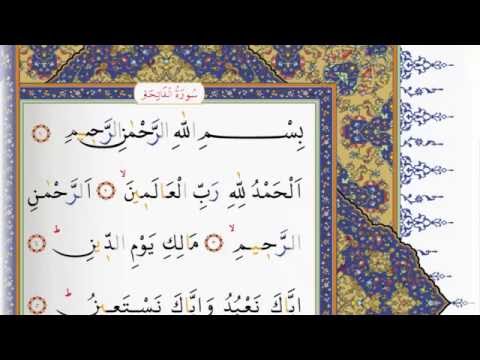 سُورَةُ الْفَاتِحَةِ
بِسْمِ اللّٰهِ الرَّحْمٰنِ الرَّحٖيمِ
اَلْحَمْدُ لِلّٰهِ رَبِّ الْعَالَمٖينَۙ اَلرَّحْمٰنِ
الرَّحٖيمِۙ مَالِكِ يَوْمِ الدّٖينِؕ
اِيَّاكَ نَعْبُدُ وَاِيَّاكَ نَسْتَعٖينُؕ